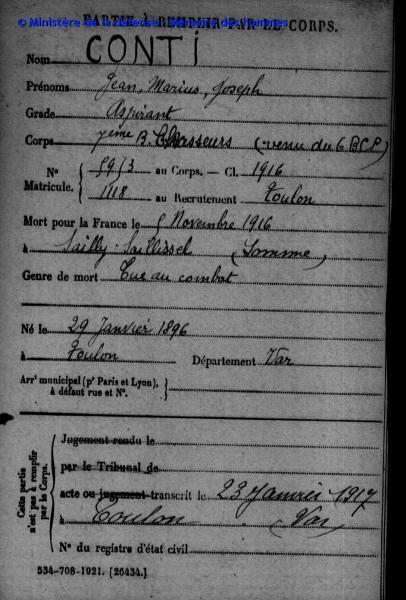 © Ministère de la défense - Mémoire des hommes
PARTIE À REMPLIR PAR LE CORPS.
Nom CONTI
Prénoms Jean, Marius, Joseph
Grade Aspirant
Corps 7ème B. Chasseurs (venu du 6 BCP)
N° Matricule. { 5913 au Corps. — Cl. 1916
1118 au Recrutement Toulon
Mort pour la France le 5 Novembre 1916
à Sailly-Saillisel (Somme)
Genre de mort Tué au combat
Né le 29 Janvier 1896
à Toulon Département Var
Arrt municipal (pr Paris et Lyon), à défaut rue et N°.
Cette partie n'est pas à remplir par le Corps.
Jugement rendu le
par le Tribunal de
acte ou jugement transcrit le 23 Janvier 1917
à Toulon (Var)
N° du registre d'état civil
534-708-1921. [26434.]